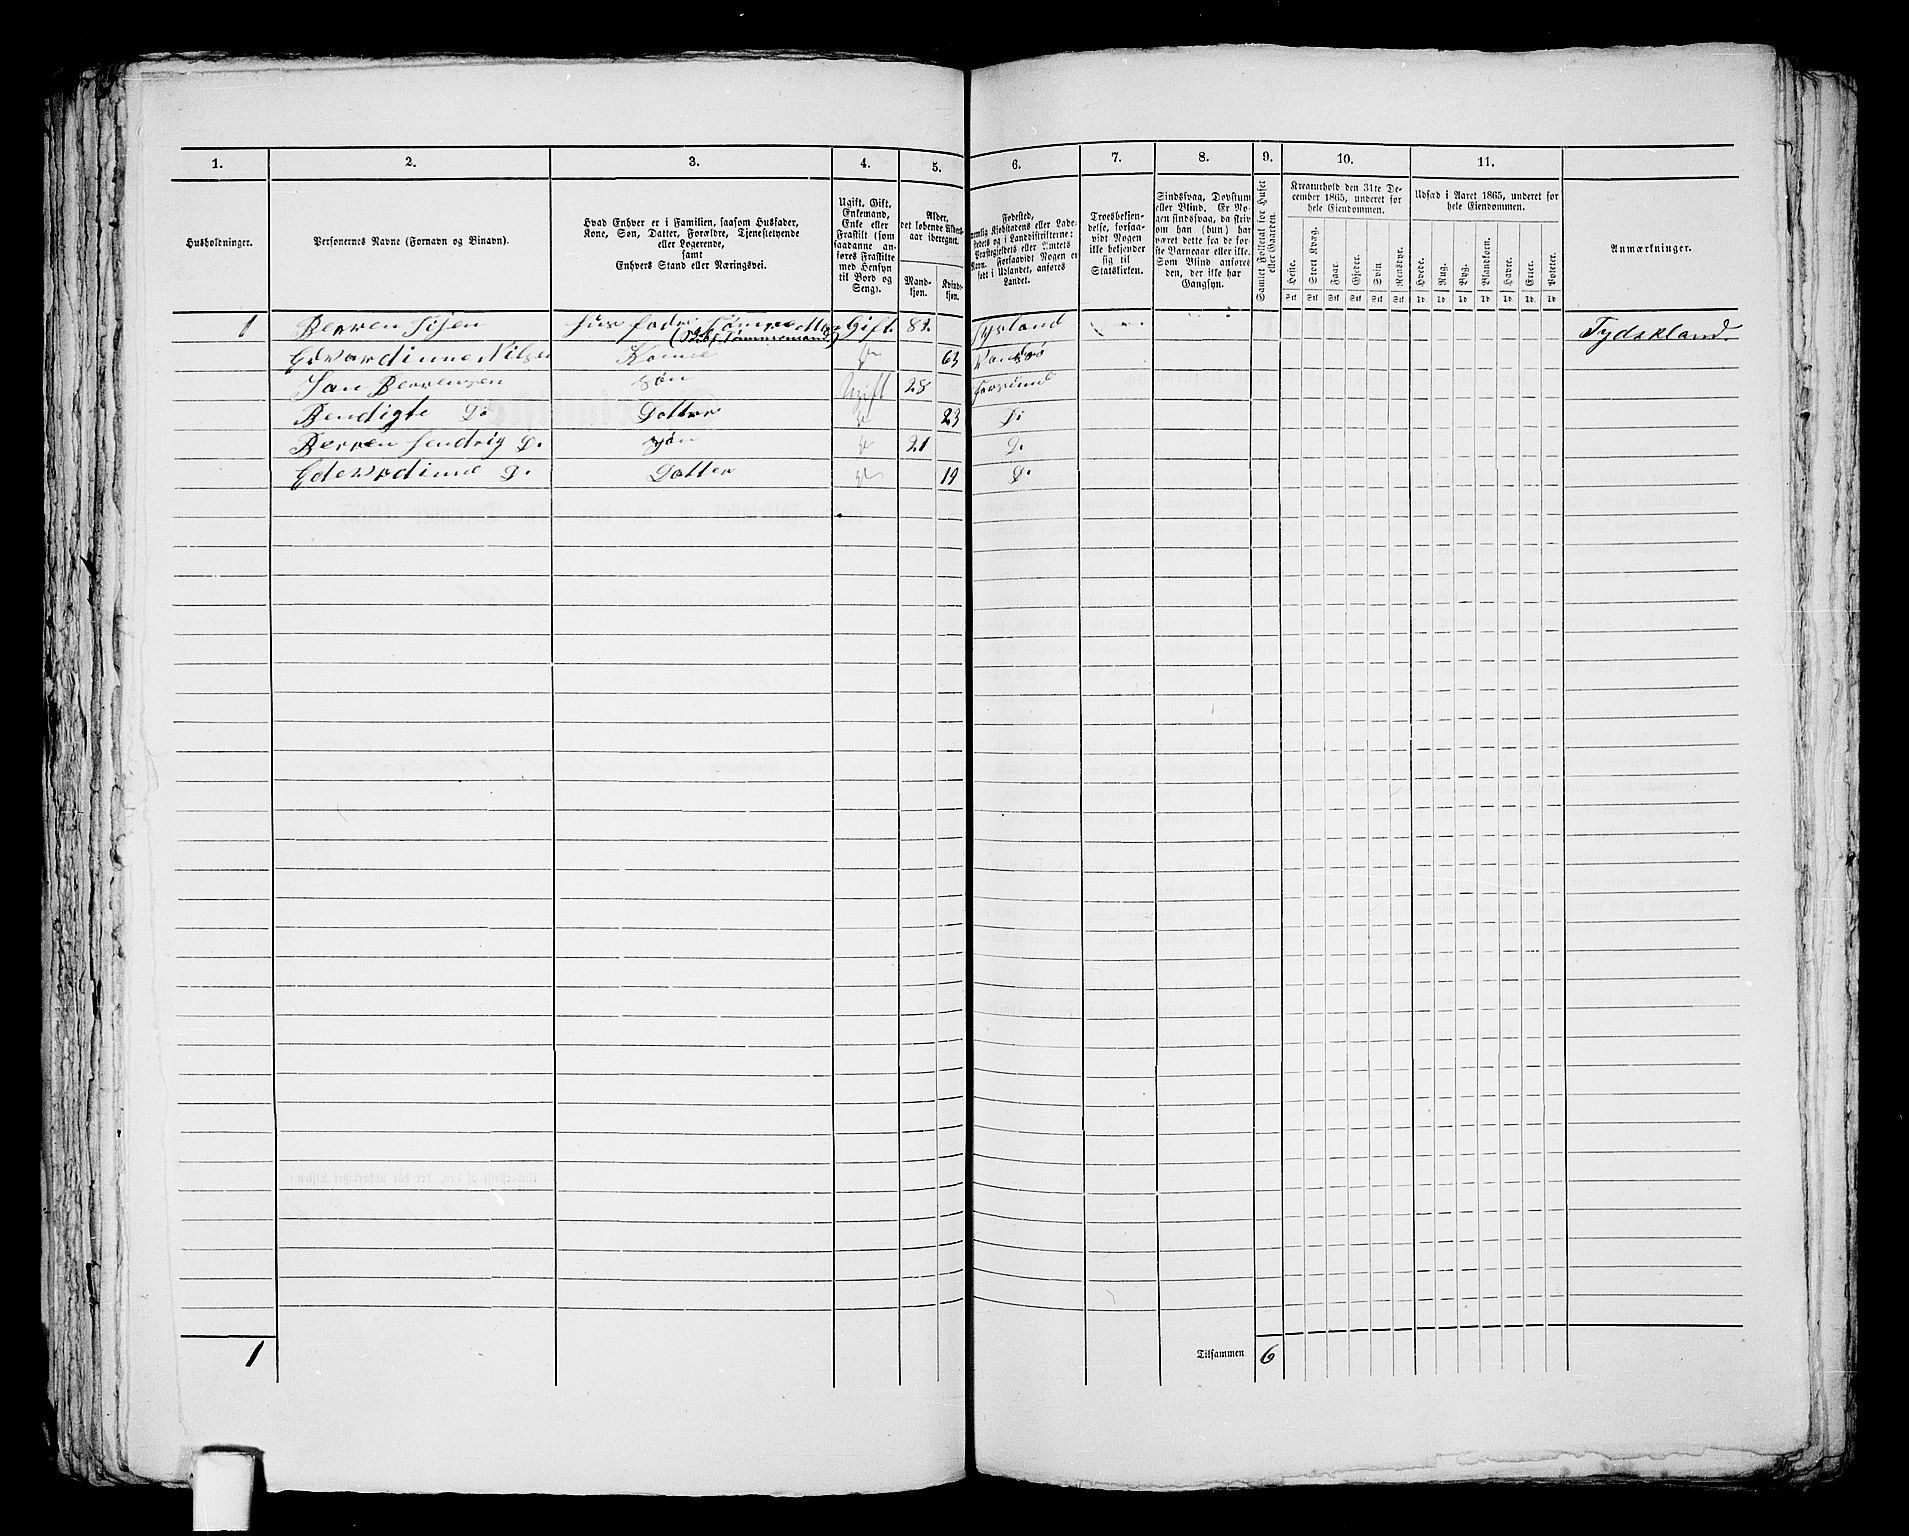 1. 2. 3. 4. 5. 6. 7. 8. 9. 10. 11.
Husholdninger.
Personernes Navne (Fornavn og Binavn).
Hvad Enhver er i Familien, saasom Husfader,
Kone, Søn, Datter, Forældre, Tjenestetyende
eller Logerende,
samt
Enhvers Stand eller Næringsvei.
Ugift, Gift,
Enkemand,
Enke eller
Fraskilt (som
saadanne an-
føres Fraskilte
med Hensyn
til Bord og
Seng).
Alder,
det løbende Alders-
aar iberegnet.
Mand-
kjøn.
Kvind-
kjøn.
Fødested,
nemlig Kjøbstadens eller Lade-
stedets og i Landdistrikterne:
Præstegjeldets eller Amtets
Navn. Forsaavidt Nogen er
født i Udlandet, anføres
Landet.
Troesbekjen-
delse, forsaa-
vidt Nogen
ikke bekjender
sig til
Statskirken.
Sindssvag, Døvstum
eller Blind. Er No-
gen sindssvag, da skriv
om han (hun) har
været dette fra de før-
ste Barneaar eller ikke.
Som Blind anføres
den, der ikke har
Gangsyn.
Samlet Folketal for Huset
eller Gaarden.
Kreaturhold den 31te De-
cember 1865, underet for
hele Eiendommen.
Heste. Stort Kvæg. Faar. Gjeder. Svin. Rensdyr.
Stk Stk Stk Stk Stk Stk
Udsæd i Aaret 1865, underet for
hele Eiendommen.
Hvede. Rug. Byg. Blandkorn. Havre. Erter. Poteter.
Td Td Td Td Td Td Td
Anmærkninger.
1 Berren Gift Tydskland
Edvardinne Nilsen Konne 63
Jan Berrensen søn Ugift 28
Bendigte Do Datter 23 Do
Berren Hendrig D. søn 21 D.
Edewardinne D. Datter 19 D.
1 Tilsammen 6